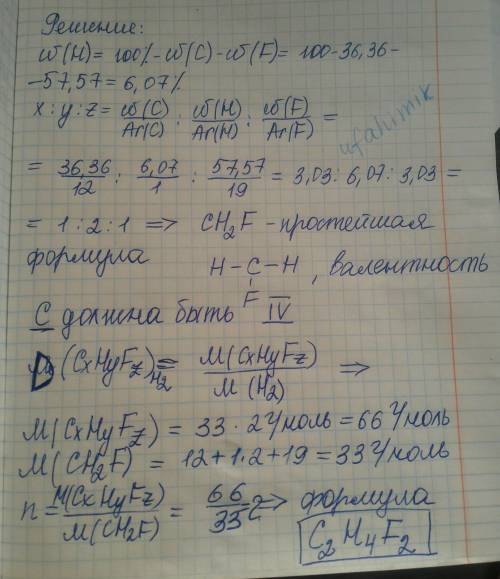 Решение:
ω(H) = 100% - ω(C) - ω(F) = 100 - 36,36 -
- 57,57 = 6,07%
x : y : z = ω(C)/Ar(C) : ω(H)/Ar(H) : ω(F)/Ar(F) =
ufahimik
= 36,36/12 : 6,07/1 : 57,57/19 = 3,03 : 6,07 : 3,03 =
= 1 : 2 : 1 => CH2F - простейшая
формула
H - C - H , валентность
F
C должна быть IV
D (CxHyFz)H2 = M(CxHyFz)/M(H2) =>
M(CxHyFz) = 33 · 2 г/моль = 66 г/моль
M(CH2F) = 12 + 1·2 + 19 = 33 г/моль
n = M(CxHyFz)/M(CH2F) = 66/33 => формула
C2H4F2